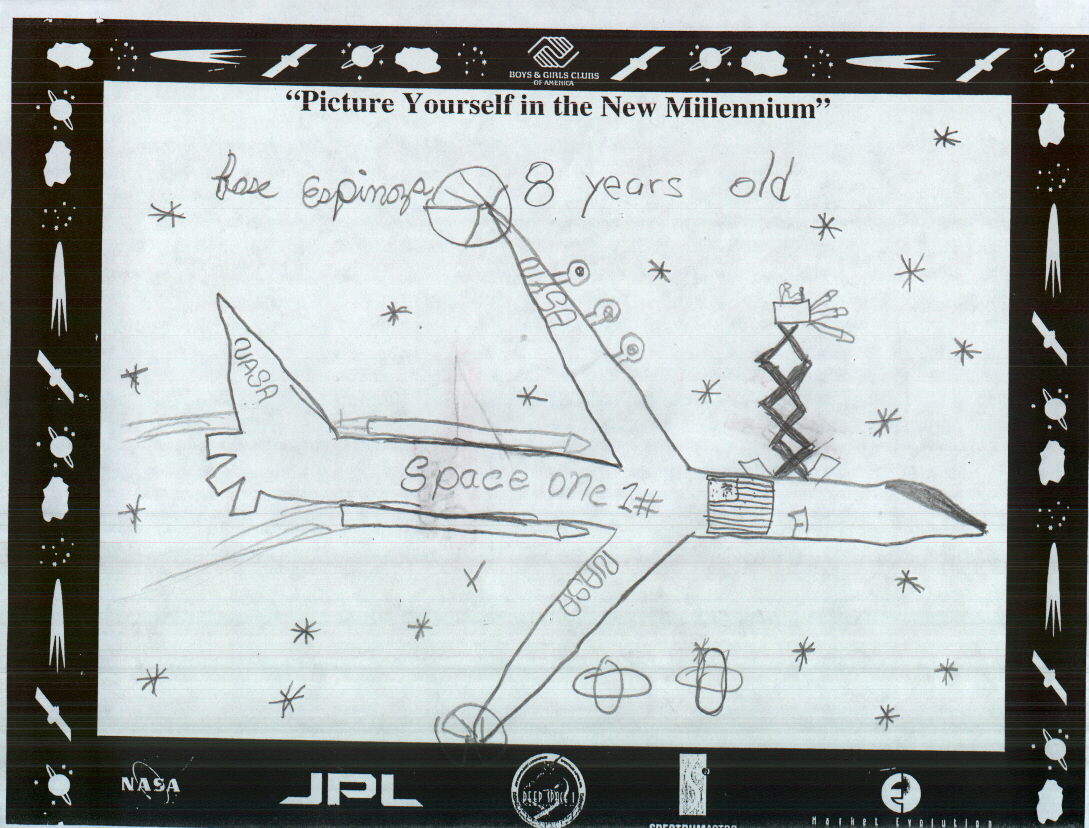 BOYS & GIRLS CLUBS
OF AMERICA
“Picture Yourself in the New Millennium”
Rose Espinoza 8 years old
NASA
NASA
Space one 1#
NASA
NASA
JPL
DEEP SPACE 1
SPECTRUMASTRO
Market Evolution